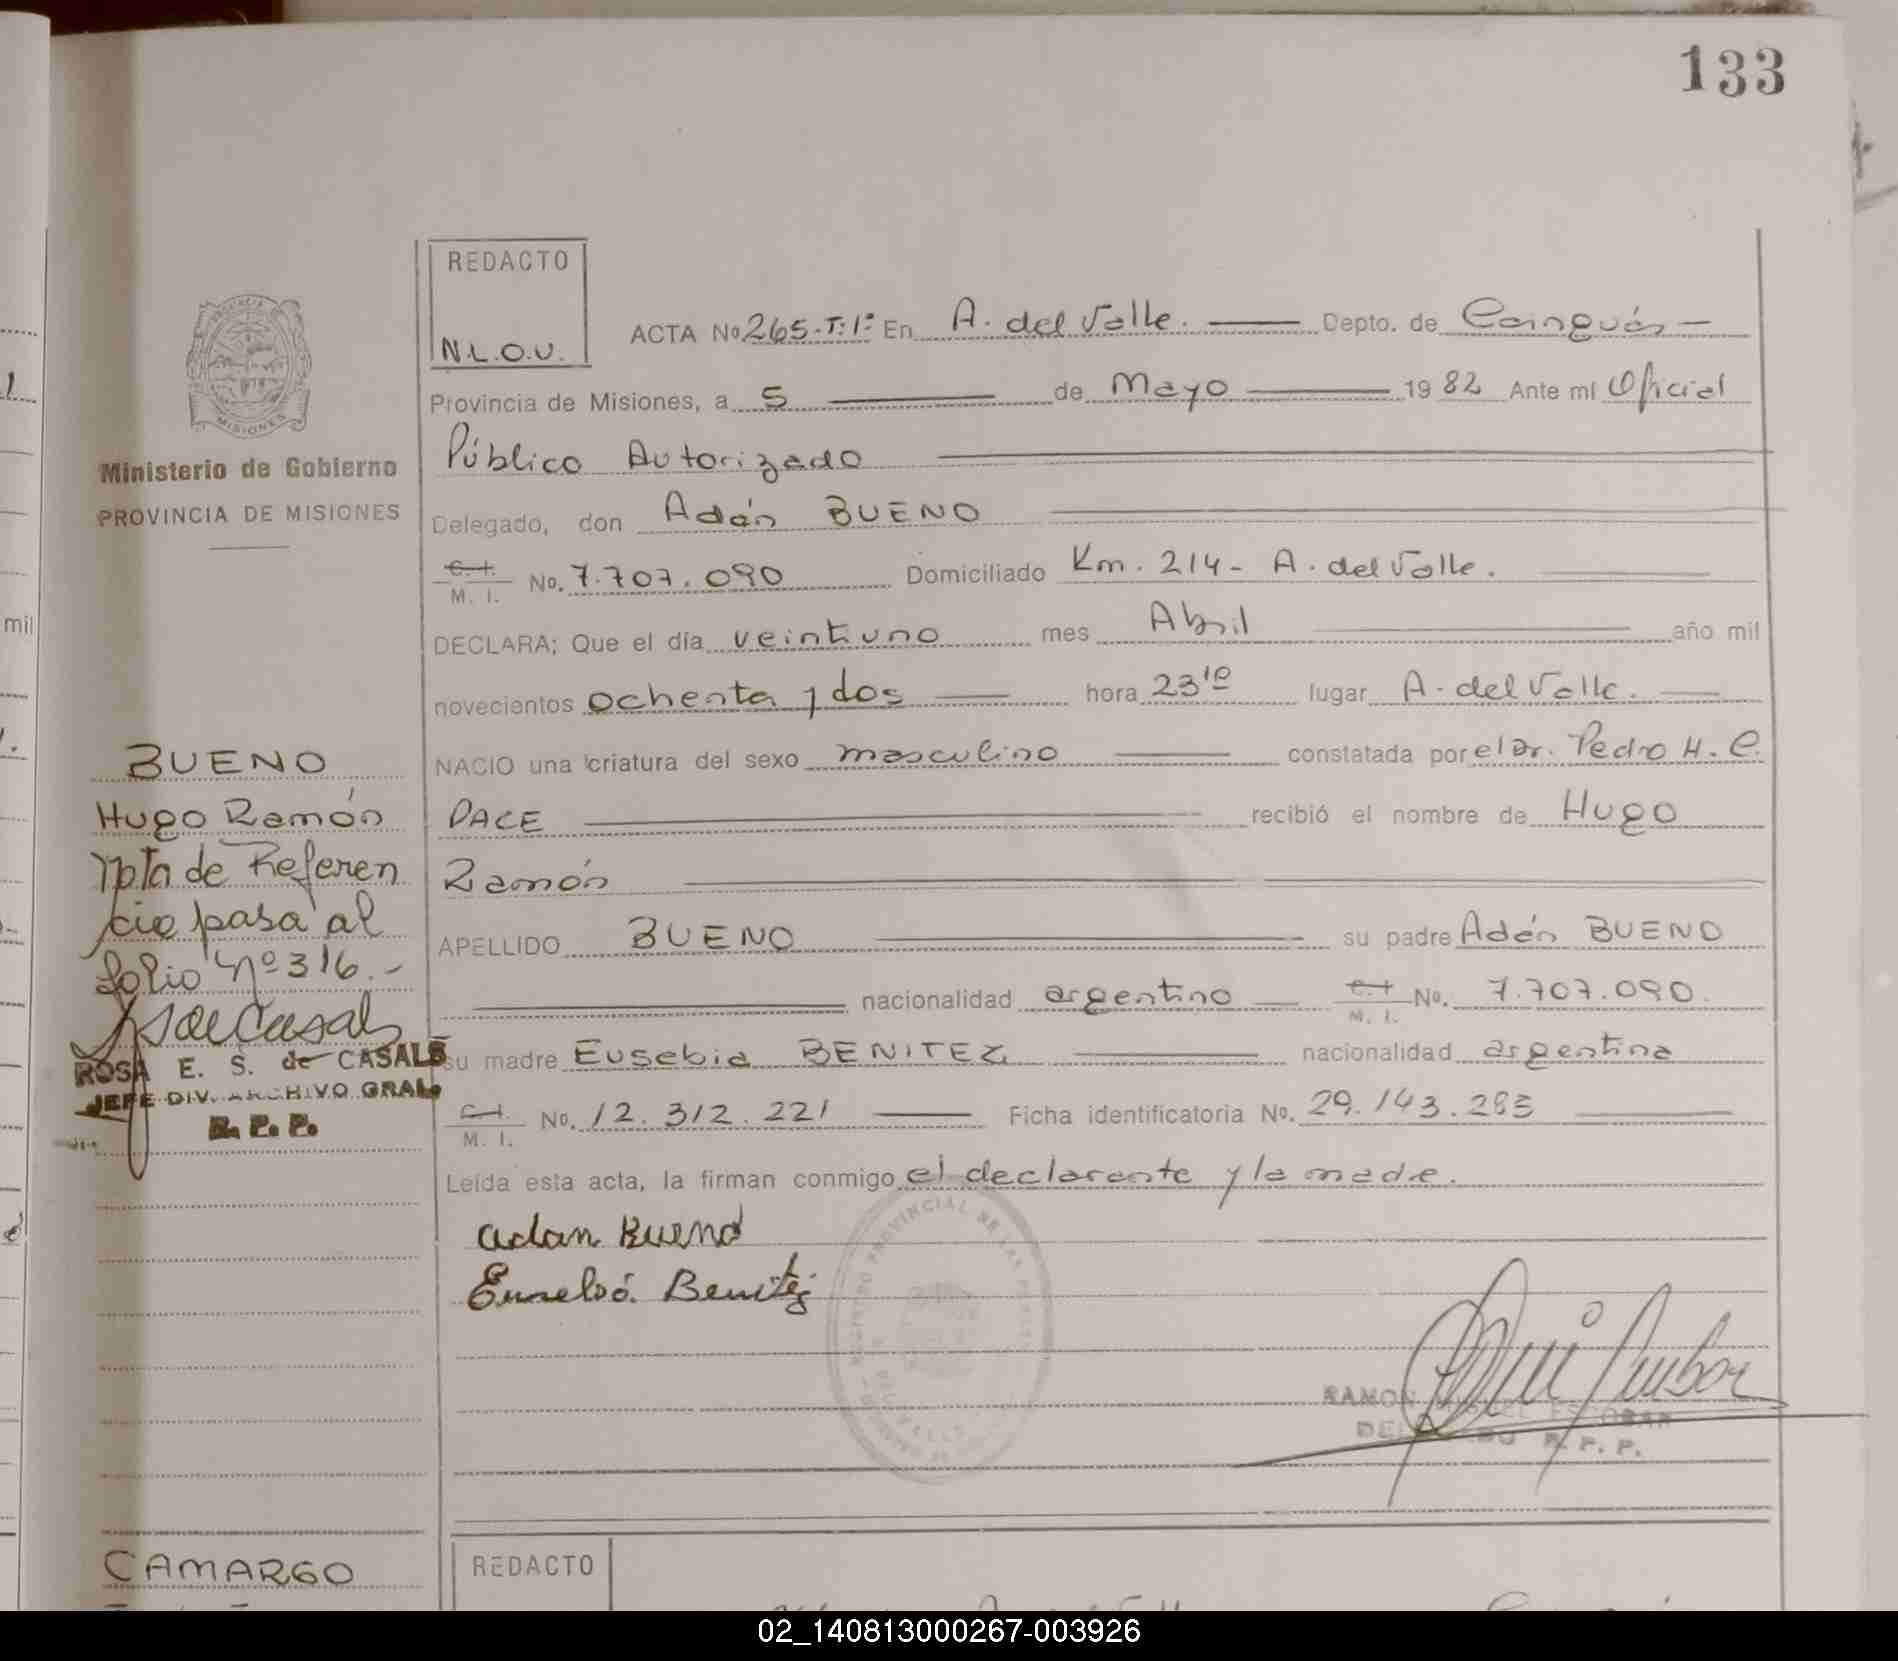 133
REDACTO
N.L.O.U.
ACTA No 265-T:1º En A. del Valle. Depto. de Cainguás
Provincia de Misiones, a 5 de Mayo 1982 Ante mí Oficial
Público Autorizado
Ministerio de Gobierno
PROVINCIA DE MISIONES
Delegado, don Adán BUENO
C. I.
M. I. No. 7.707.090 Domiciliado Km. 214- A. del Valle.
DECLARA; Que el día veintiuno mes Abril año mil
novecientos ochenta y dos hora 23¹⁰ lugar A. del Valle.
NACIO una criatura del sexo masculino constatada por el Dr. Pedro H. C.
PACE recibió el nombre de Hugo
Ramón
APELLIDO BUENO su padre Adán BUENO
nacionalidad argentino C. I.
M. I. No. 7.707.090.
su madre Eusebia BENITEZ nacionalidad argentina
C. I.
M. I. No. 12.312.221 Ficha identificatoria No. 29.143.283
Leída esta acta, la firman conmigo el declarante y la madre.
adan Bueno
Benitez
RAMON MIGUEL ESCOBAR
DELEGADO R. P. P.
BUENO
Hugo Ramón
Nota de Referen
cia pasa al
folio Nº 316.-
ROSA E. S. de CASALS
JEFE DIV. ARCHIVO GRAL.
R. P. P.
CAMARGO
REDACTO
02_140813000267-003926